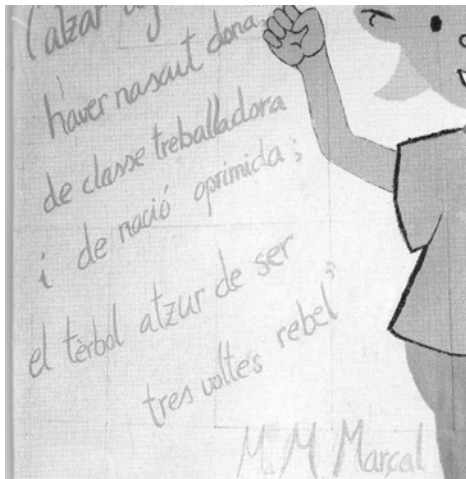 l'atzar
haver nascut dona,
de classe treballadora
i de nació oprimida;
el tèrbol atzur de ser
tres voltes rebel”
M. M Marçal